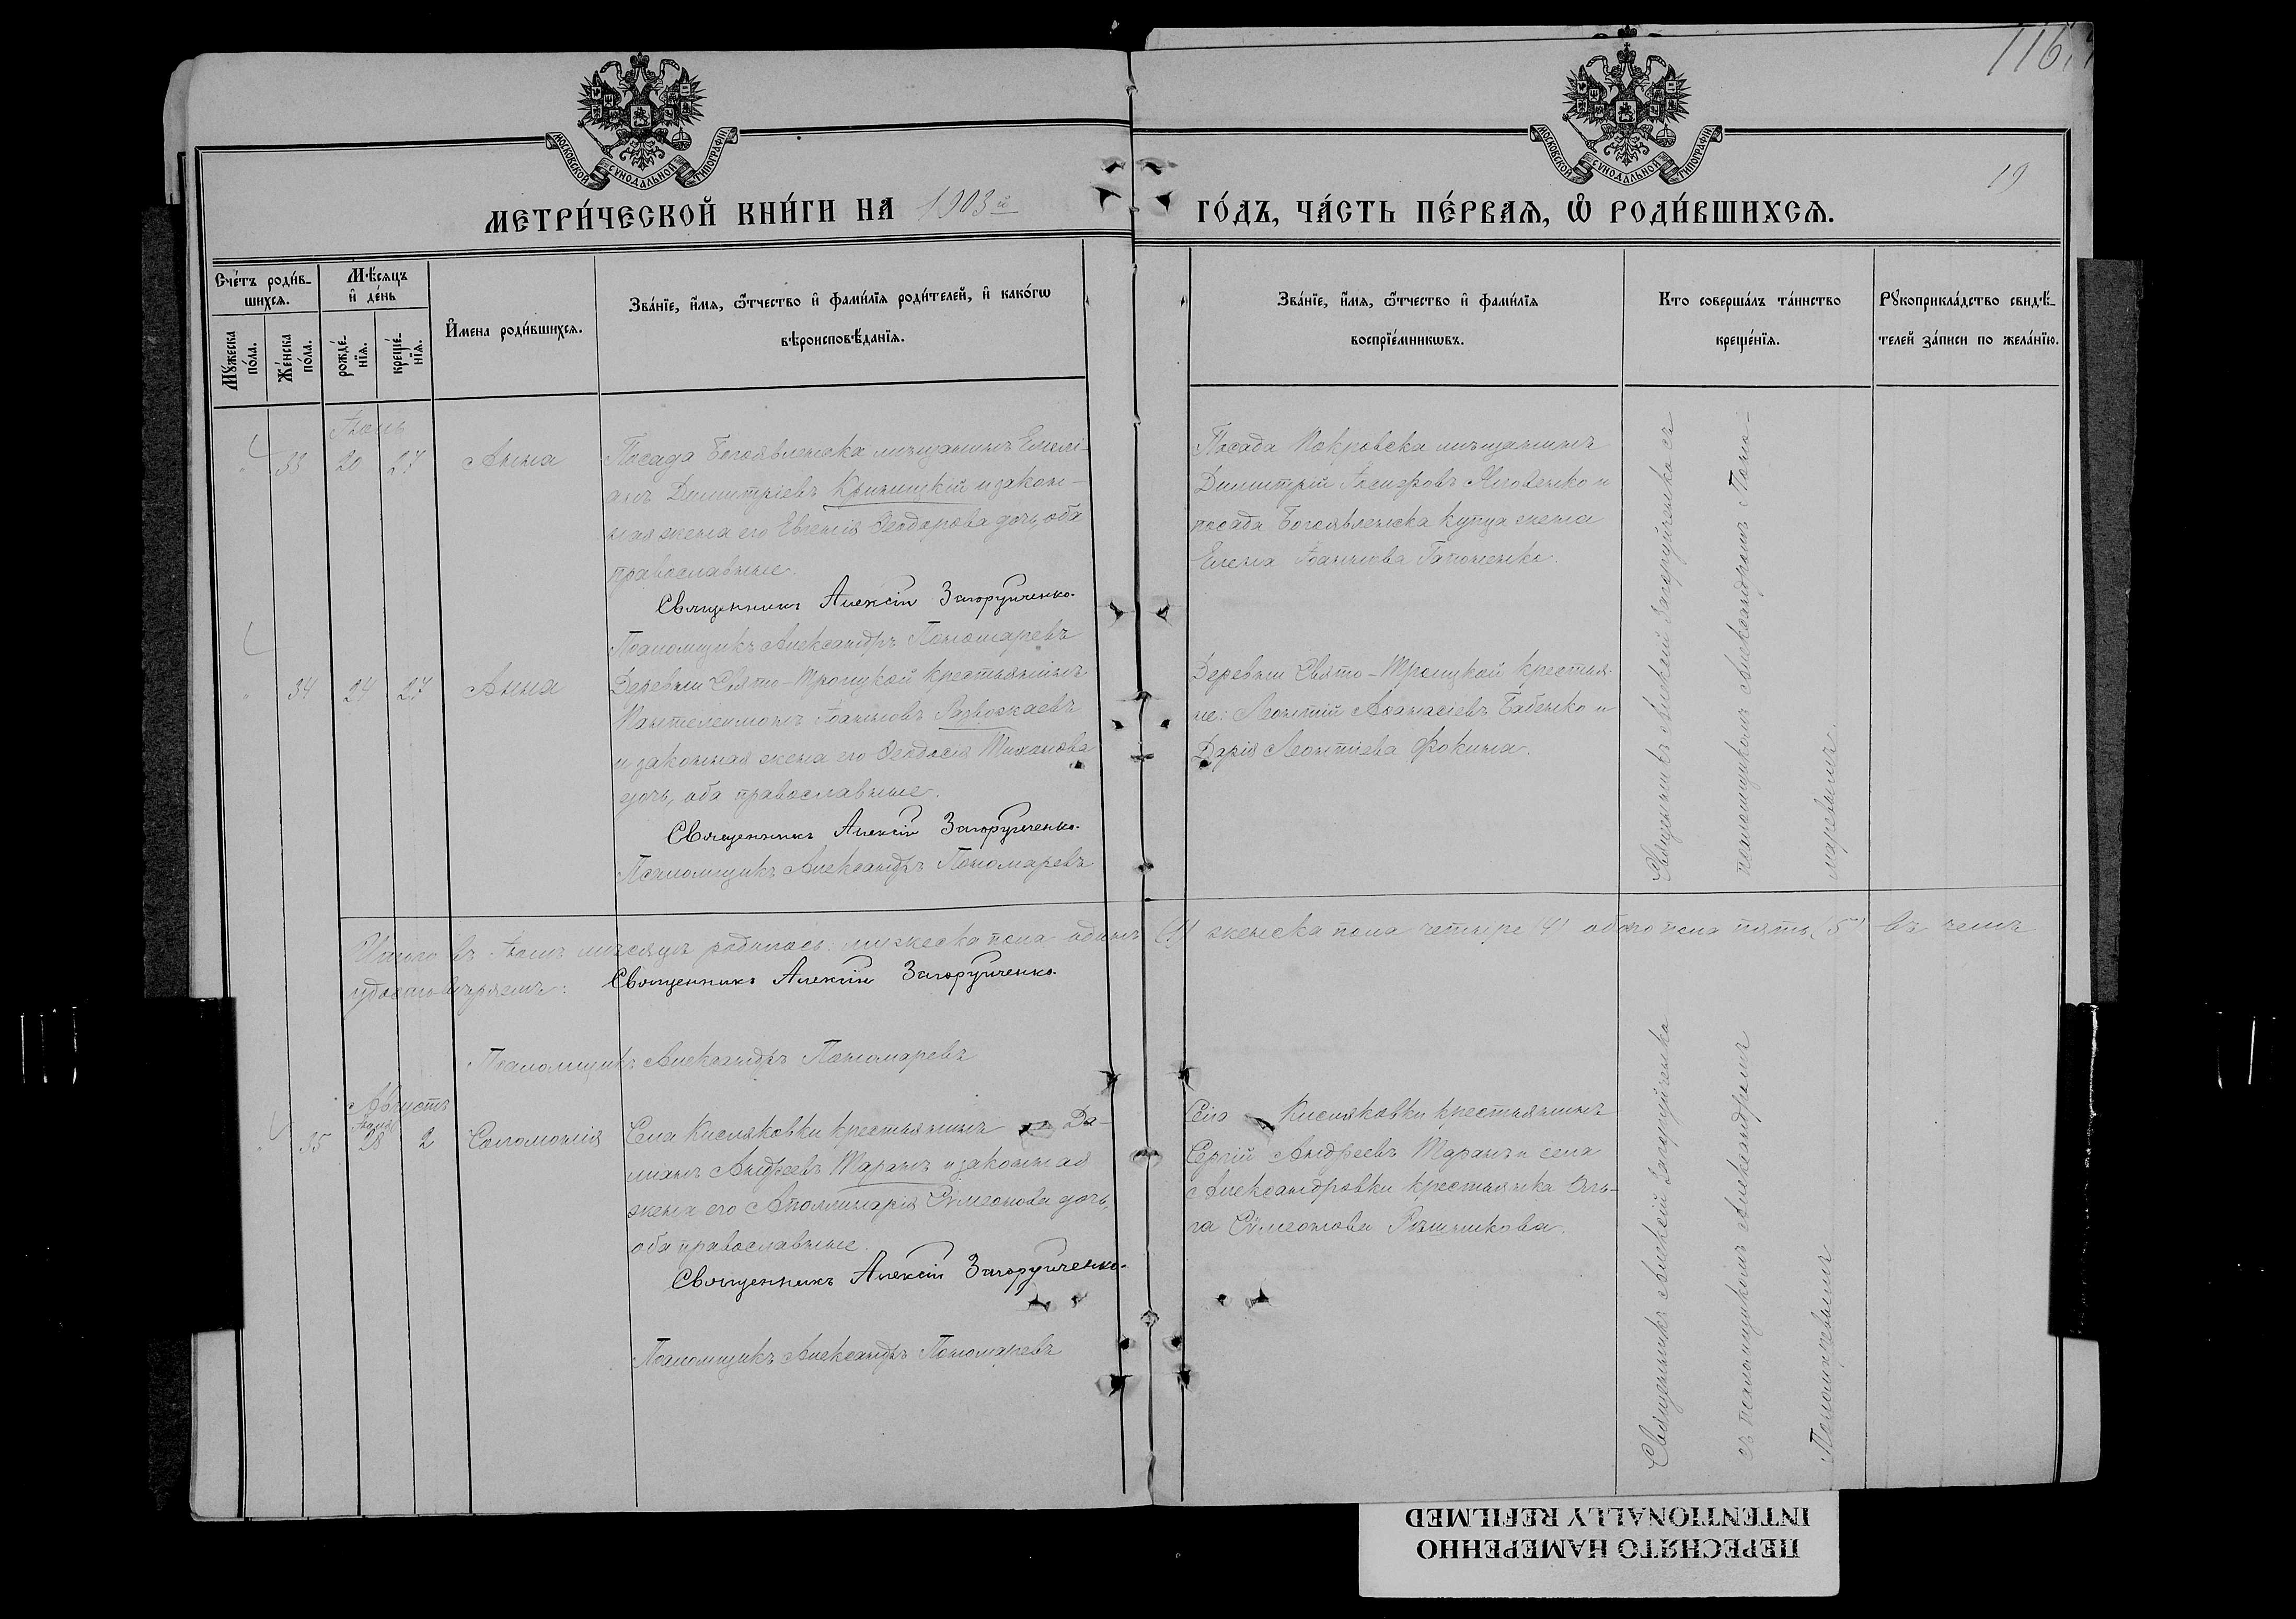 116
19
МОСКОВСКОЙ СѴНОДАЛЬНОЙ ТИПОГРАФІИ
МОСКОВСКОЙ СѴНОДАЛЬНОЙ ТИПОГРАФІИ
МЕТРИ́ЧЕСКОЙ КНИ́ГИ НА 1903й
ГО́ДЪ, ЧА́СТЬ ПЕ́РВАЯ, Ѽ РОДИ́ВШИХСЯ.
Сче́тъ роди́в-
шихся.
Мѣ́сяцъ
и҆ де́нь
Мꙋ́жеска
по́ла.
Же́нска
по́ла.
рожде́-
нїя.
креще́-
нїя.
И҆́мена роди́вшихся.
Зва́нїе, и҆́мя, ѻ҆́тчество и҆ фами́лїя роди́телей, и҆ како́гѡ
вѣроисповѣ́данїя.
Зва́нїе, и҆́мя, ѻ҆́тчество и҆ фами́лїя
воспрїе́мникѡвъ.
Кто соверша́лъ та́инство
креще́нїя.
Рꙋкоприкла́дство свидѣ́-
телей за́писи по жела́нїю.
33 20 27 Анна
Посада Богоявленска мѣщанинъ Емелі-
анъ Димитріевъ Криницкій и закон-
ная жена его Евгенія Ѳеодорова дочь, оба
православные.
Священникъ Алексій Загоруйченко.
Псаломщикъ Александръ Пономаревъ
Посада Покровска мѣщанинъ
Димитрій и
посада Богоявленска купца жена
Елена Іоаннова Гапоненко.
Священникъ Алексій Загоруйченко съ
псаломщикомъ Александромъ Поно-
маревымъ.
34 24 27 Анна
Деревни Свято-Троицкой крестьянинъ
Пантелеимонъ Іоанновъ Развожаевъ
и законная жена его Ѳеодосія Тихонова
дочь, оба православные.
Священникъ Алексій Загоруйченко.
Псаломщикъ Александръ Пономаревъ
Деревни Свято-Троицкой крестья-
не: Леонтій Аѳанасіевъ Бабенко и
Дарія Леонтіева Фокина.
Итого въ мѣсяцѣ родилось: мужеска пола одинъ (1) женска пола четыре (4) обоего пола пять (5) въ чемъ
удостовѣряемъ: Священникъ Алексій Загоруйченко.
Псаломщикъ Александръ Пономаревъ
Августъ
35 28 2 Соломонія
Села Кисляковки крестьянинъ Да-
міанъ Андреевъ Таранъ и законная
жена его Аполлинарія Симеонова дочь,
оба православные.
Священникъ Алексій Загоруйченко.
Псаломщикъ Александръ Пономаревъ
Села Кисляковки крестьянинъ
Сергій Андреевъ Таранъ и села
Александровки крестьянка Оль-
га Симеонова
Священникъ Алексій Загоруйченко
съ псаломщикомъ Александромъ
Пономаревымъ
ПЕРЕСНЯТО НАМЕРЕННО
INTENTIONALLY REFILMED